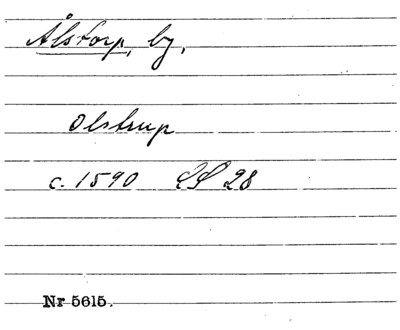 Ålstorp, by,
Olstrup
c. 1590 LS 28
Nr 5615.